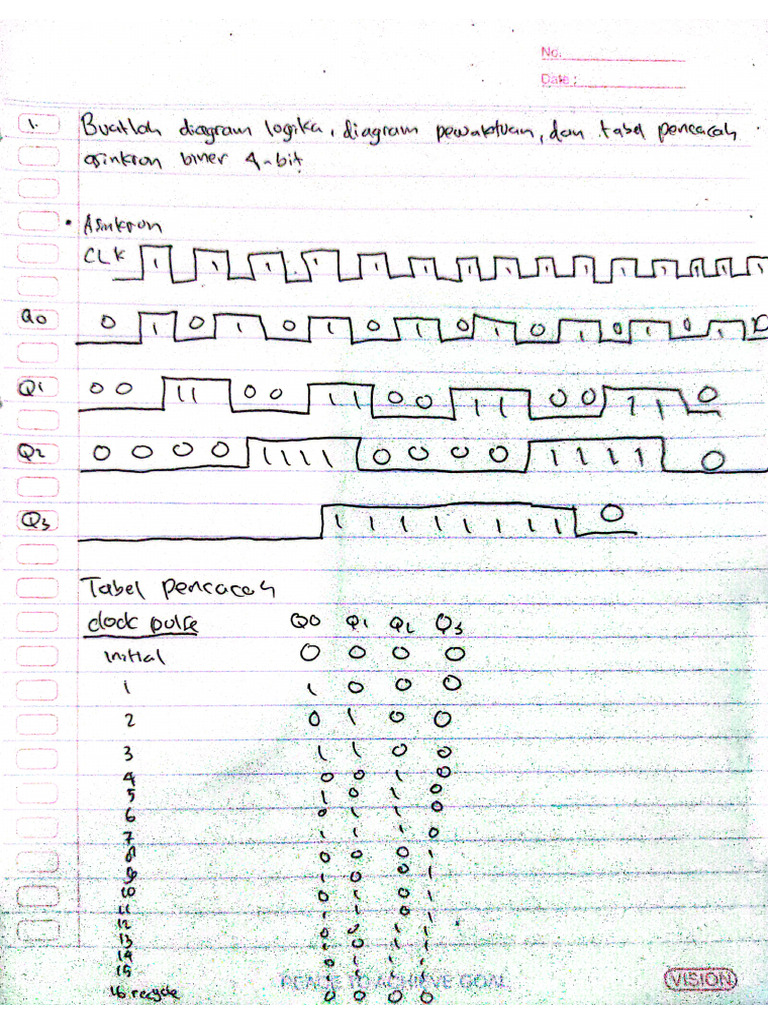 No.
Date :
1. Buatlah diagram logika, diagram pewaktuan, dan tabel pencacah
asinkron biner 4-bit
• Asinkron
CLK 1 1 1 1 1 1 1 1 1 1 1 1 1 1 1
Q0 0 1 0 1 0 1 0 1 0 1 0 1 0 1 0 1 0
Q1 0 0 1 1 0 0 1 1 0 0 1 1 0 0 1 1 0
Q2 0 0 0 0 1 1 1 1 0 0 0 0 1 1 1 1 0
Q3 1 1 1 1 1 1 1 1 0
Tabel pencacah
clock pulse Q0 Q1 Q2 Q3
initial 0 0 0 0
1 1 0 0 0
2 0 1 0 0
3 1 1 0 0
4 0 0 1 0
5 1 0 1 0
6 0 1 1 0
7 1 1 1 0
8 0 0 0 1
9 1 0 0 1
10 0 1 0 1
11 1 1 0 1
12 0 0 1 1
13 1 0 1 1
14 0 1 1 1
15 1 1 1 1
16 recycle 0 0 0 0
TO ACHIEVE GOAL
VISION